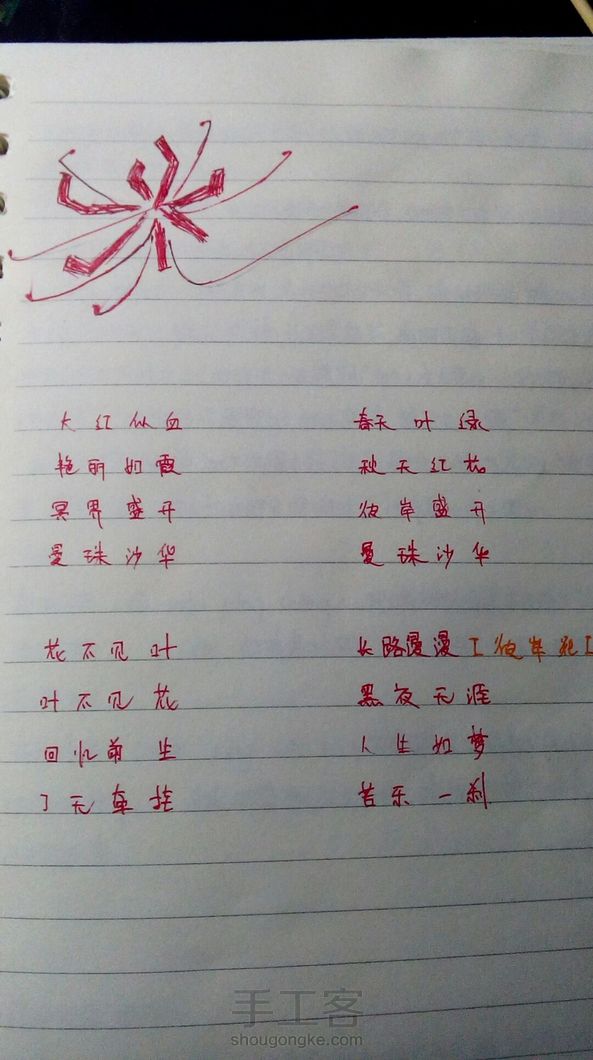 大红似血
艳丽如霞
冥界盛开
曼珠沙华
春天叶绿
秋天红花
彼岸盛开
曼珠沙华
花不见叶
叶不见花
回忆前生
了无牵挂
长路漫漫
[彼岸花]
黑夜无涯
人生如梦
苦乐一刹
手工客
shougongke.com